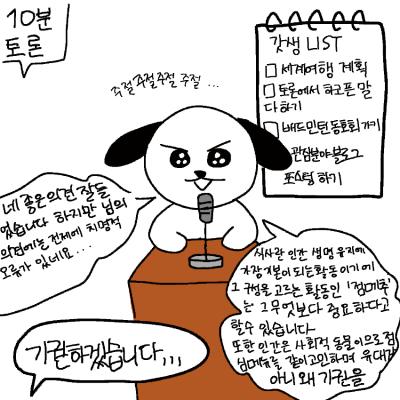 10분
토론
주절주절주절 주절...
갓생 LIST
세계여행 계획
토론에서 하고픈 말
다하기
배드민턴동호회가기
관심분야블로그
포스팅 하기
네 좋은의견 잘들
었습니다 하지만 님의
의견에는 전제에 치명적
오류가 있네요...
식사란 인간 생명 유지에
가장기본이 되는활동 이기에
그 구성을 고르는 활동인 '점메추'
는 그무엇보다 중요하다고
할수 있습니다
또한 인간은 사회적 동물이므로 점
심메뉴를 같이고민하며 유대가
아니 왜 가린을
가린하겠습니다...